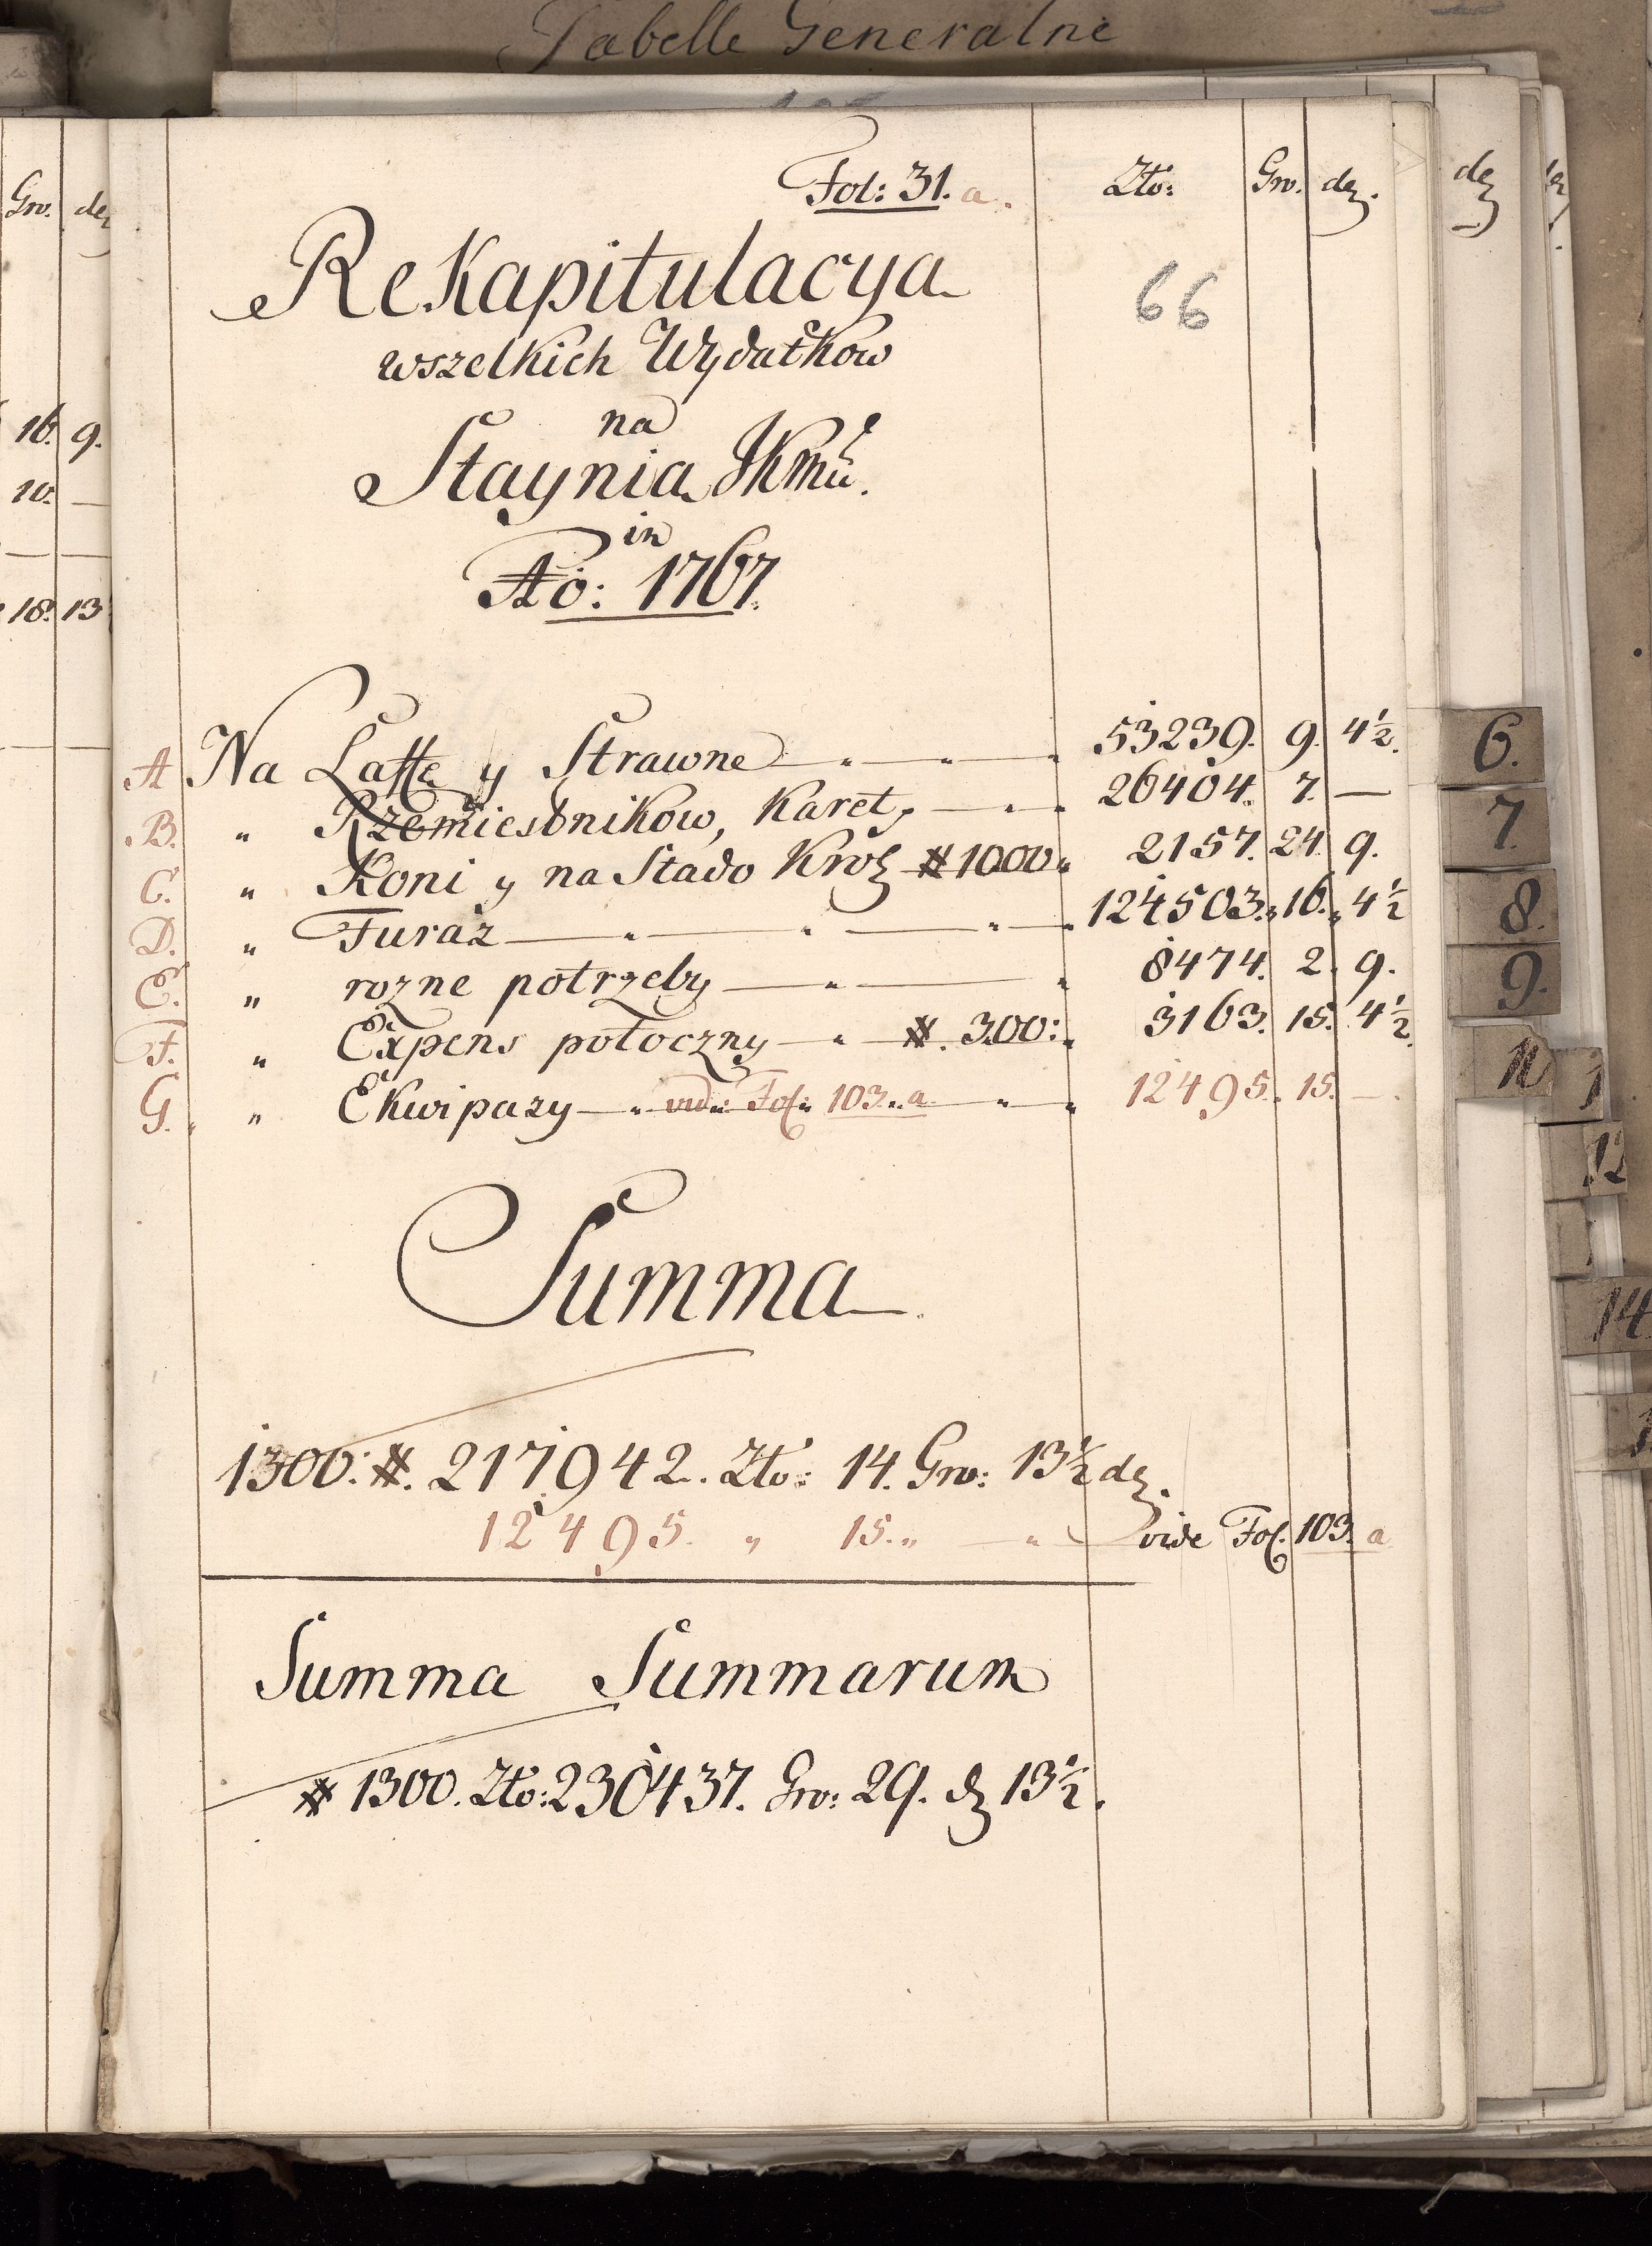 Tabelle Generalne
Fol: 31. a.
Złto: Gro. den.
66
Rekapitulacya
wszelkich Wydatkow
na
Staynia JKmći.
in
Ao: 1767.
A Na Laffę y Strawne 53239. 9. 4½.
B. " Rzemieslnikow, Karety 26404. 7. —
C. " Koni y na Stado Krol # 1000 " 2157. 24. 9.
D. " Furaż 124503. 16. 4½
E. " rozne potrzeby 8474. 2. 9.
F. " Expens potoczny " #. 300: 3163. 15. 4½.
G. " Ekwipazy vide Fol: 103. a 12495. 15. —
Summa
1300. #. 217942. Złto: 14. Gro: 13½ den.
12495. " 15. " — " vide Fol. 103. a
Summa Summarum
# 1300. Złto: 230437. Gro: 29. d 13½.
Gro. den
16. 9.
10. —
18. 13
den
6.
7.
8.
9.
12
14